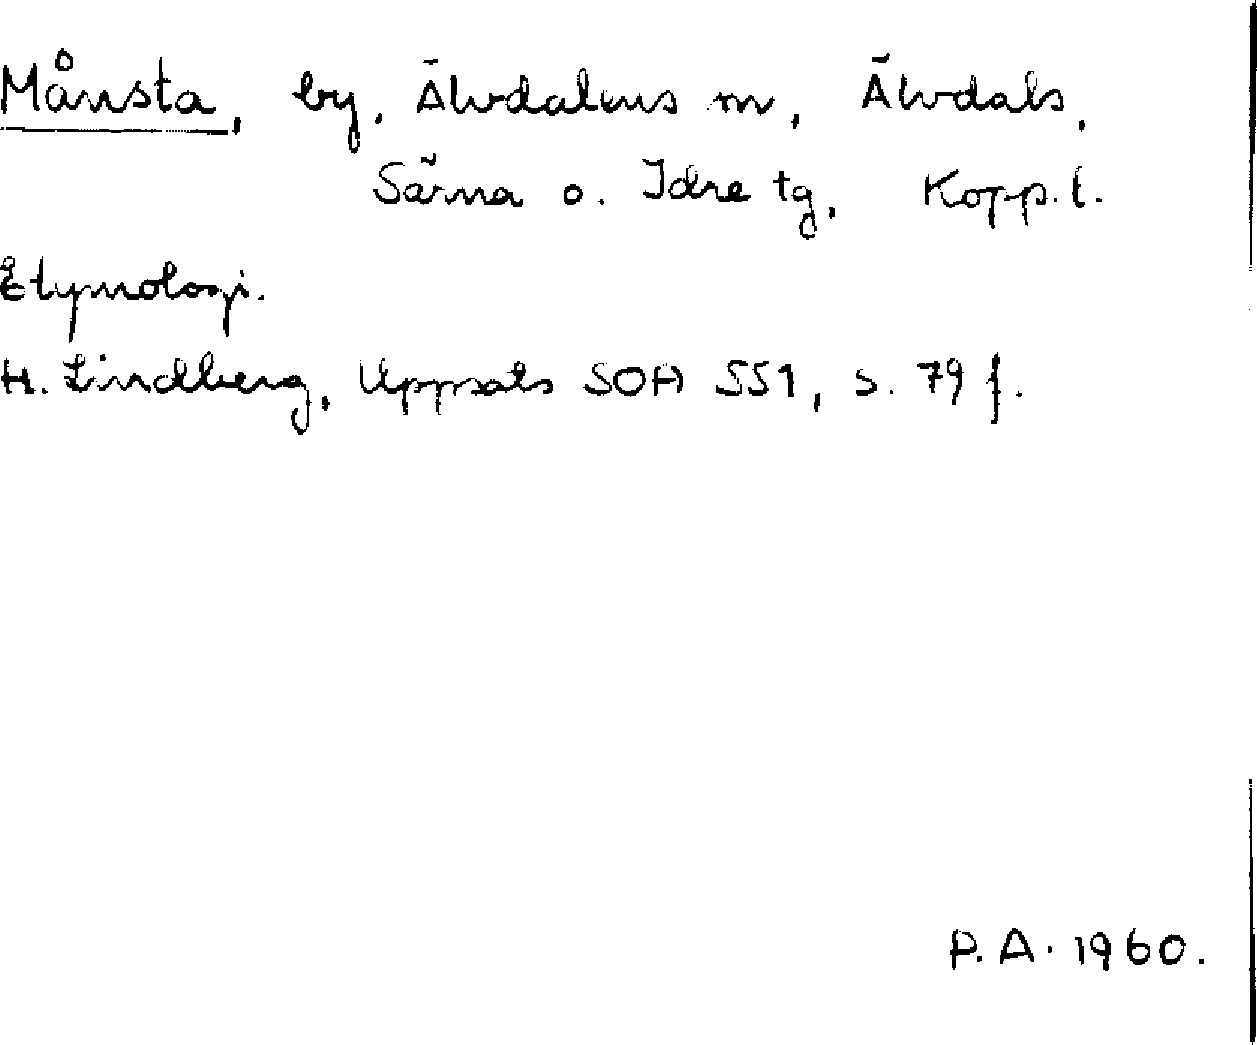 Månsta, by, Älvdalens sn, Älvdals,
Särna o. Idre tg, Kopp. l.
Etymologi.
H. Lindberg, Uppsats SOA 551, s. 79 f.
P. A. 1960.